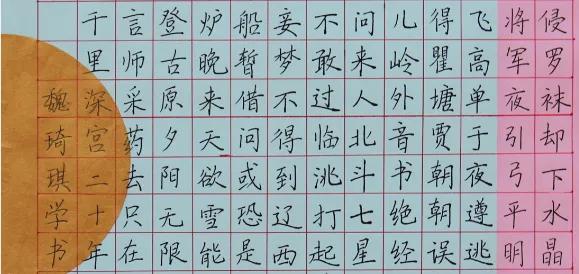 侵罗袜却下水晶
将军夜引弓平明
飞高单于夜遵逃
得瞿塘贾朝朝误
儿岭外音书绝经
问来人北斗七星
不敢过临洮打起
妾梦不得到辽西
船暂借问或恐是
炉晚来天欲雪能
登古原夕阳无限
言师采药去只在
千里深宫二十年
魏琦琪学书